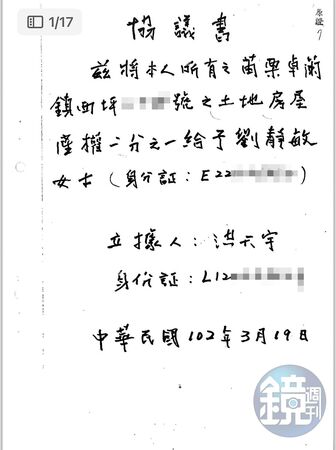 1/17
原證
7
協議書
茲將本人所有之苗栗卓蘭
鎮西坪號之土地房屋
產權二分之一給予劉靜敏
女士(身分証:E22)
立據人:洪天宇
身份証:L12
中華民國102年3月19日
鏡週刊